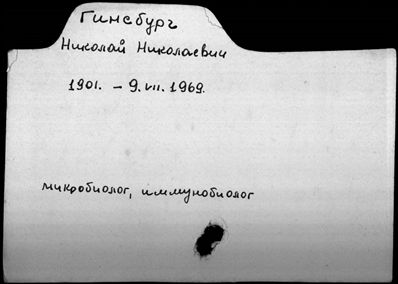 Гинсбург
Николай Николаевич
1901. – 9.VII.1969.
микробиолог, иммунобиолог